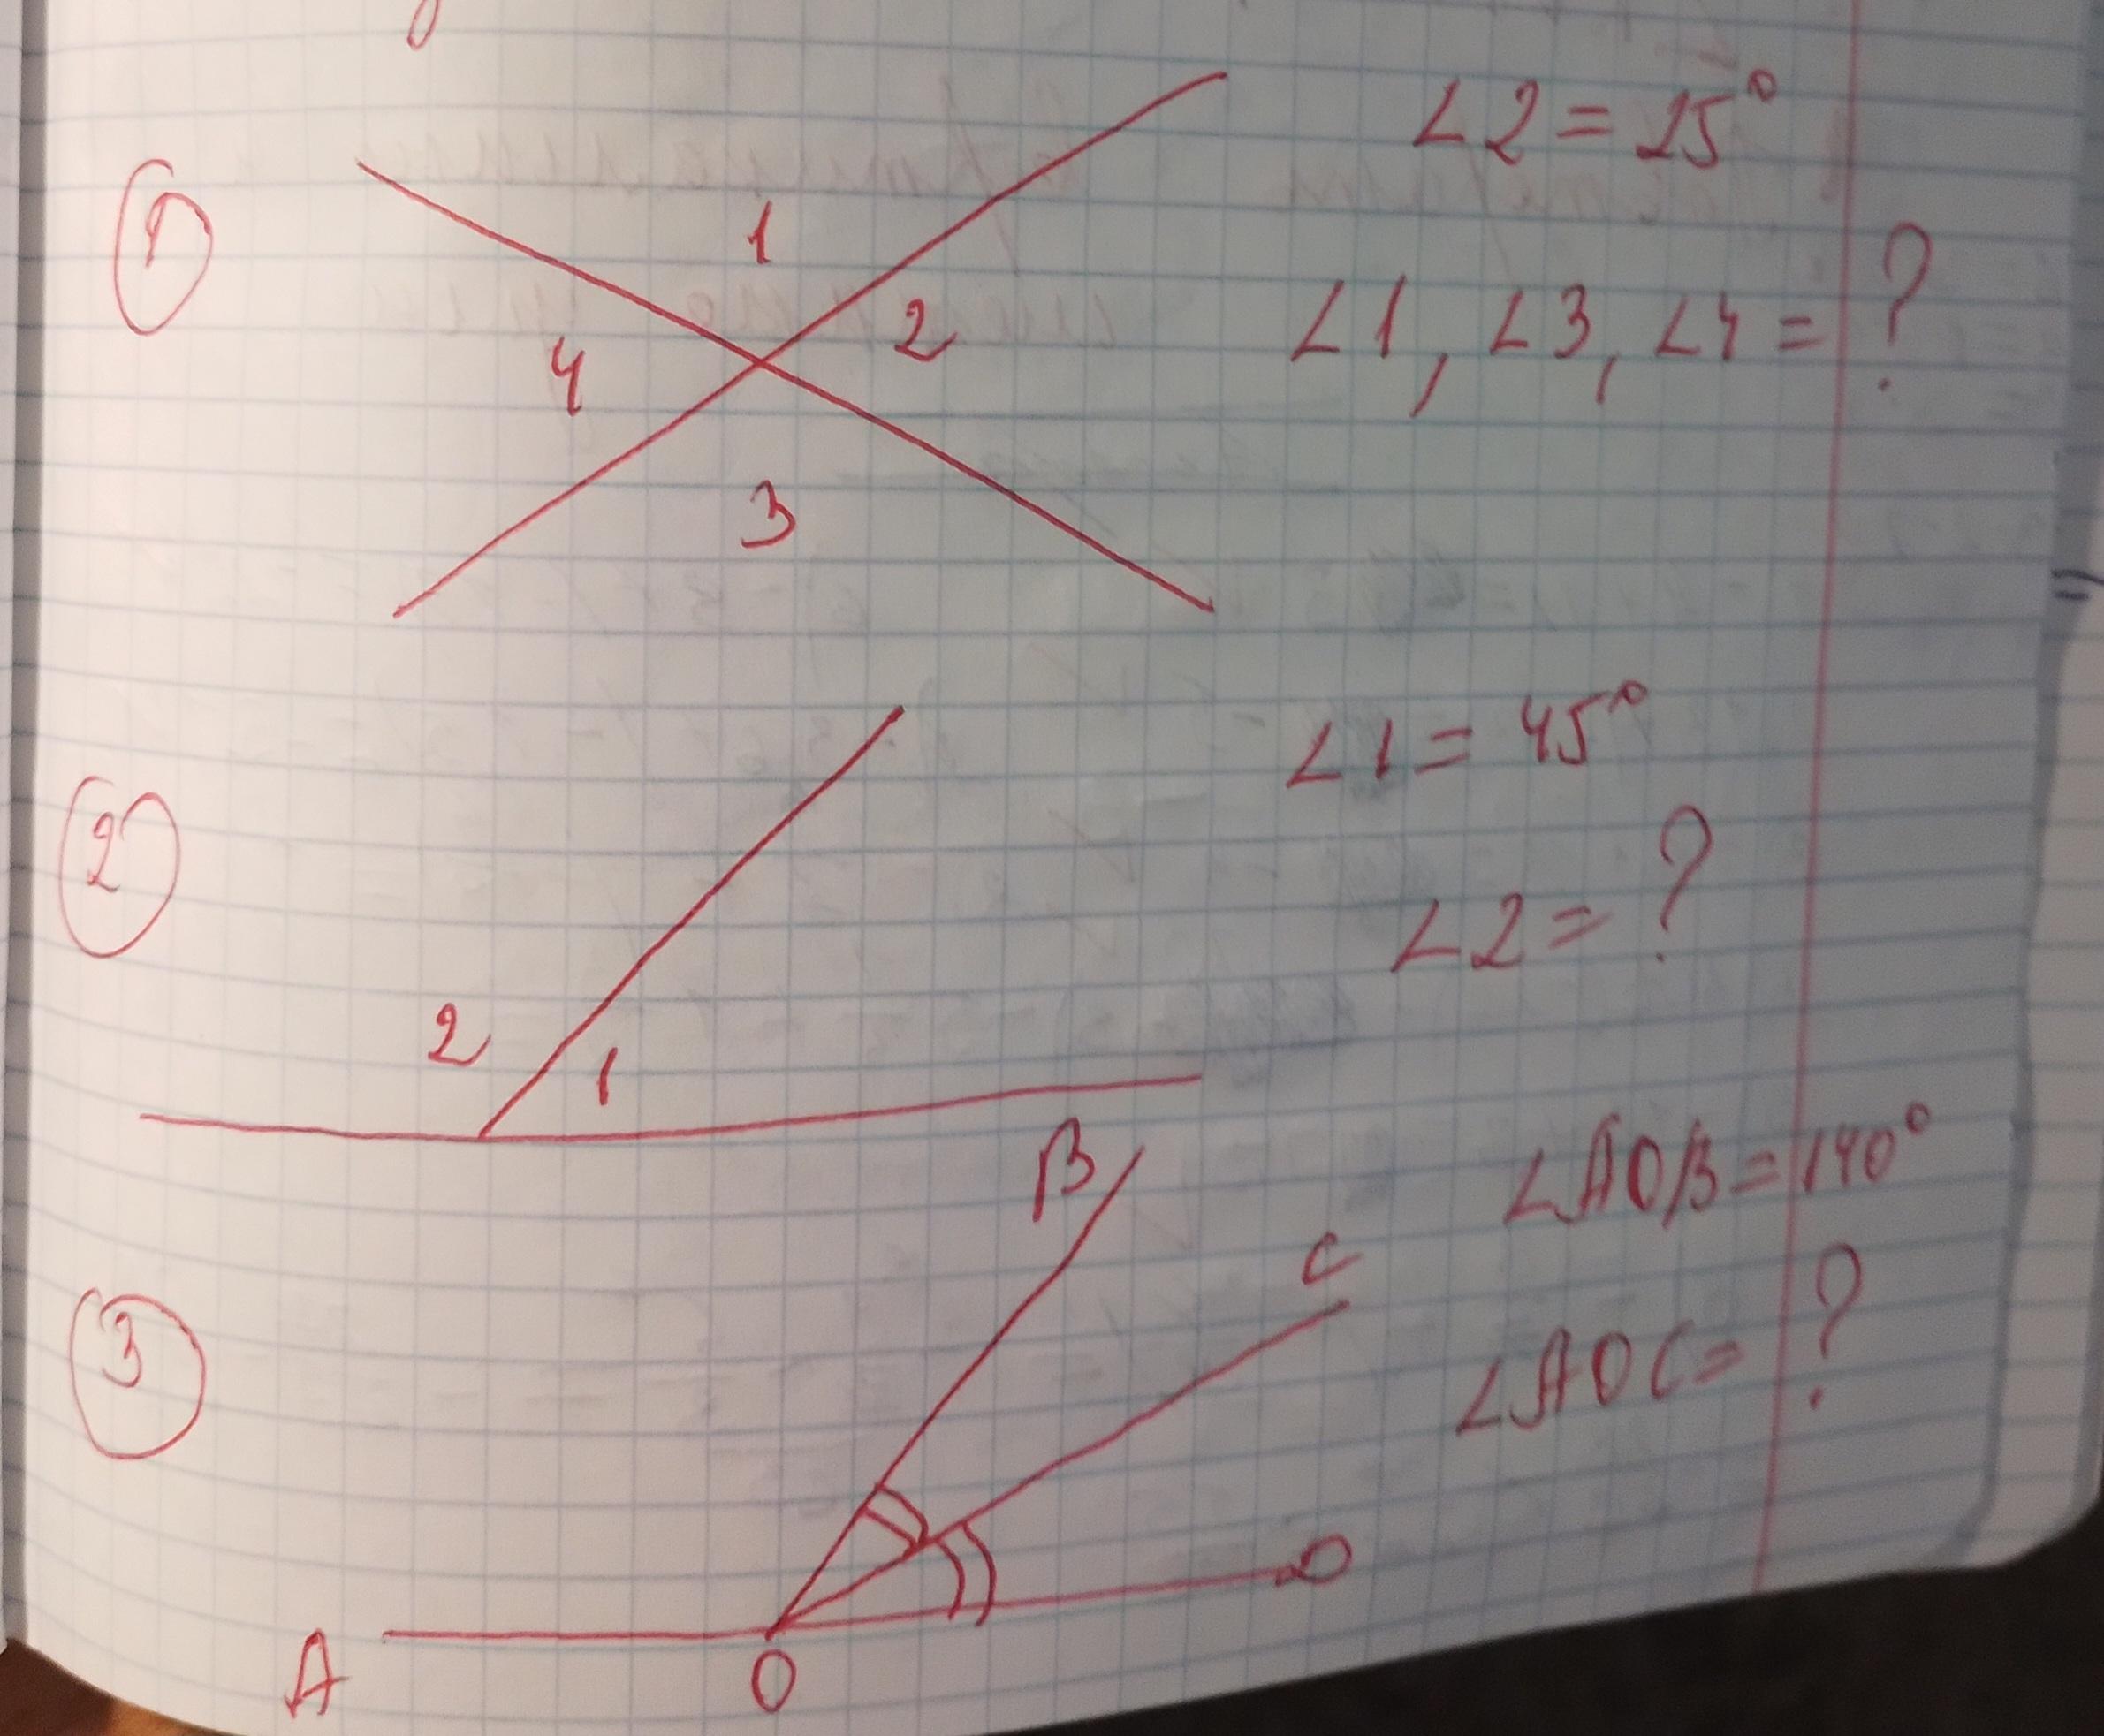 1
∠2 = 25°
1
2
∠1, ∠3, ∠4 = ?
4
3
2
∠1 = 45°
∠2 = ?
2
1
3
B
∠AOB = 140°
C
∠AOC = ?
D
A
O